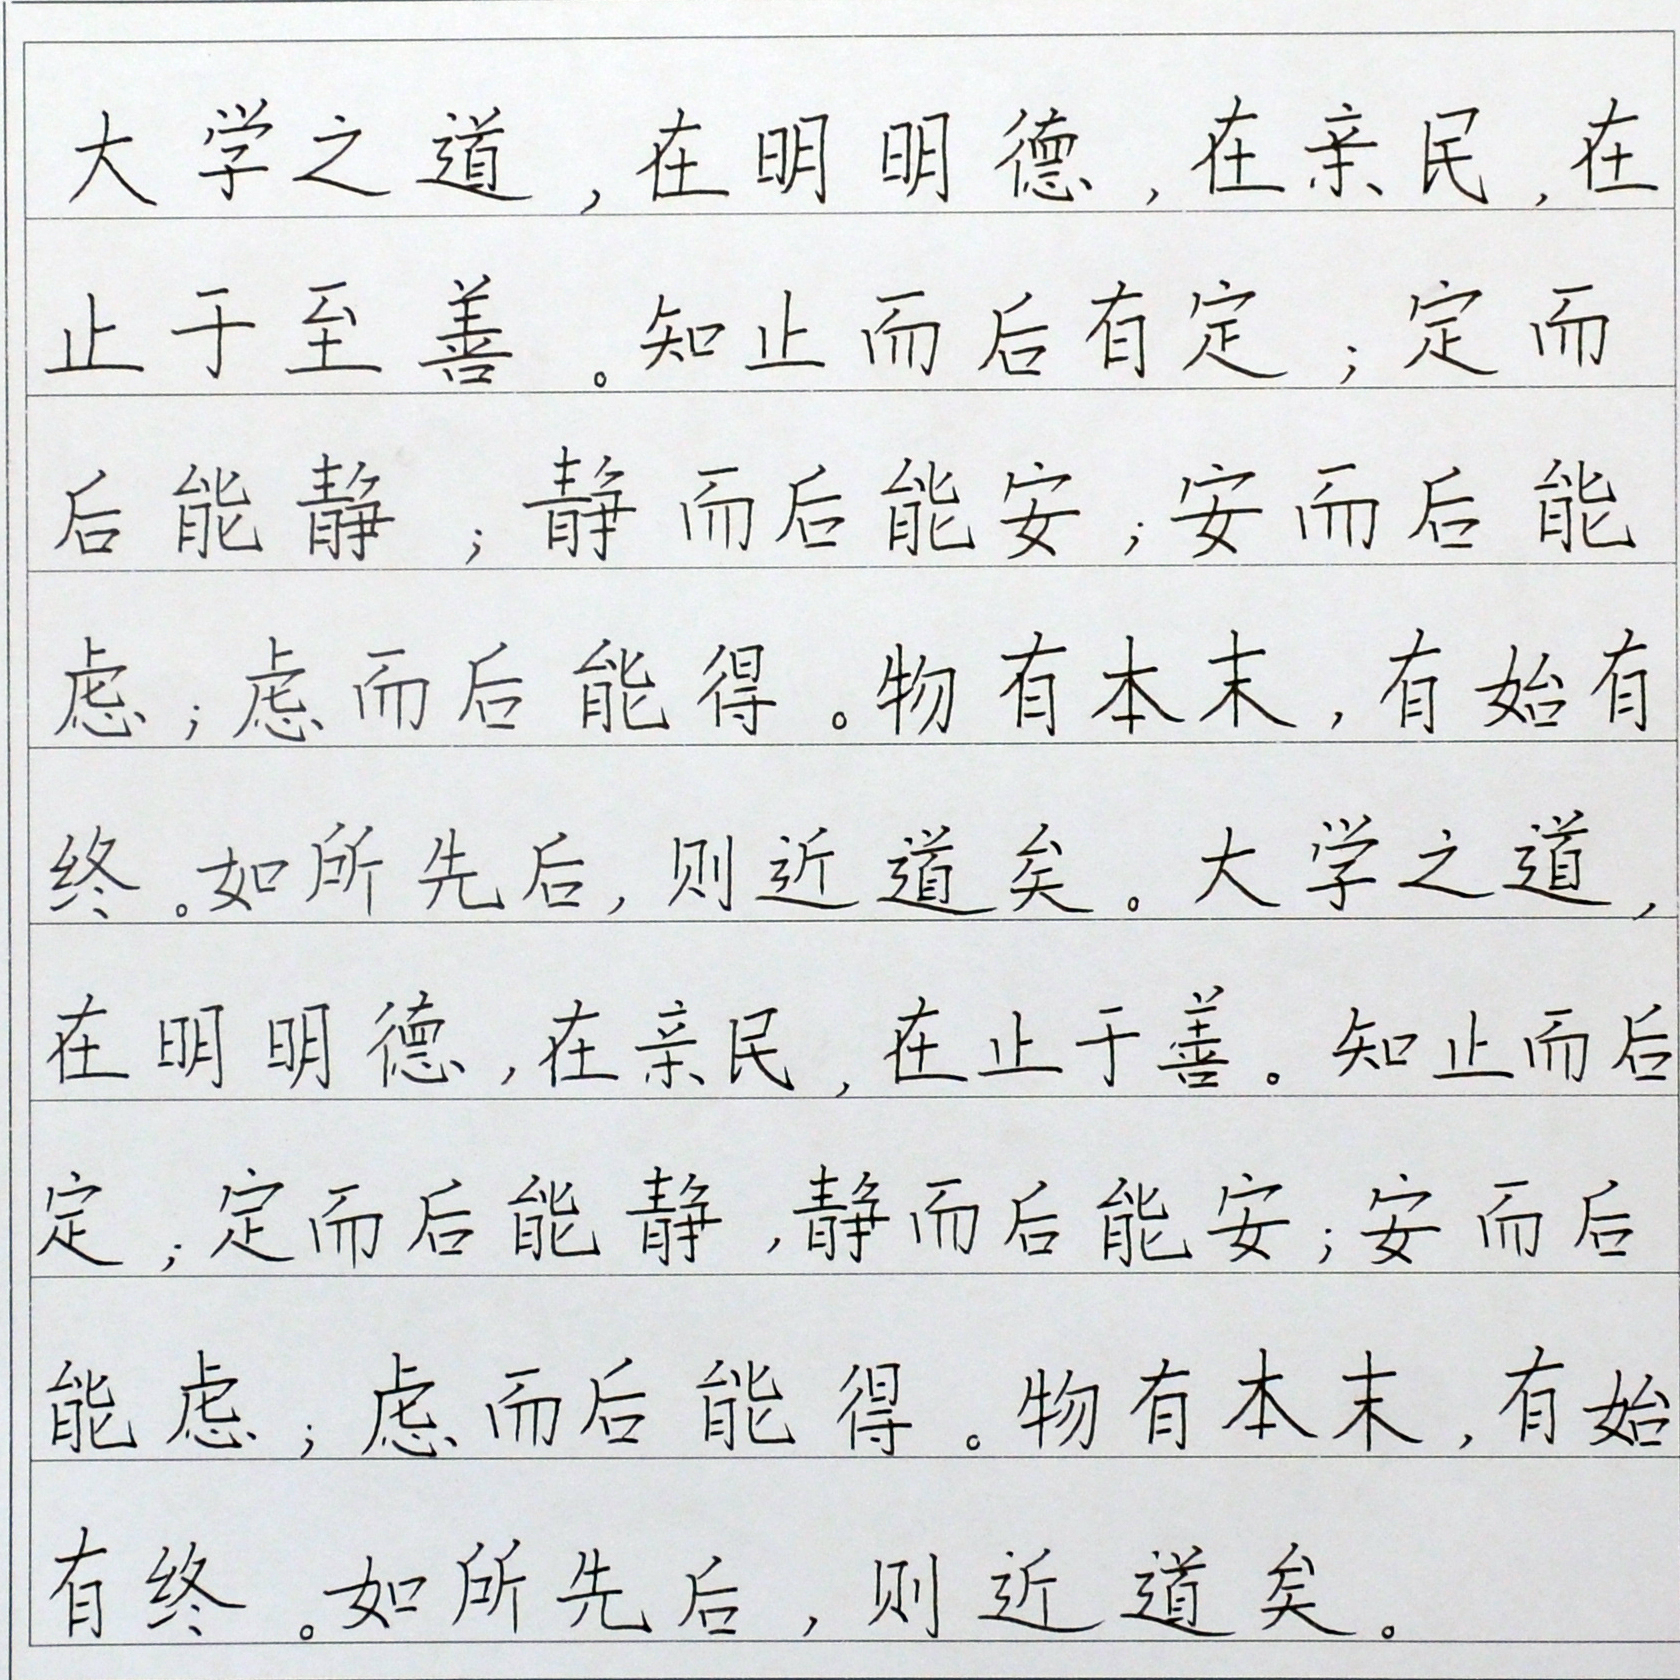 大学之道,在明明德,在亲民,在
止于至善。知止而后有定;定而
后能静;静而后能安;安而后能
虑;虑而后能得。物有本末,有始有
终。如所先后,则近道矣。大学之道,
在明明德,在亲民,在止于善。知止而后
定;定而后能静,静而后能安;安而后
能虑;虑而后能得。物有本末,有始
有终。如所先后,则近道矣。